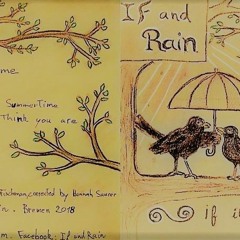 me
SummerTime
Think you are
Fischman, corrected by Hannah Saurer
Bremen 2018
Facebook: If and Rain
If and
Rain
if i